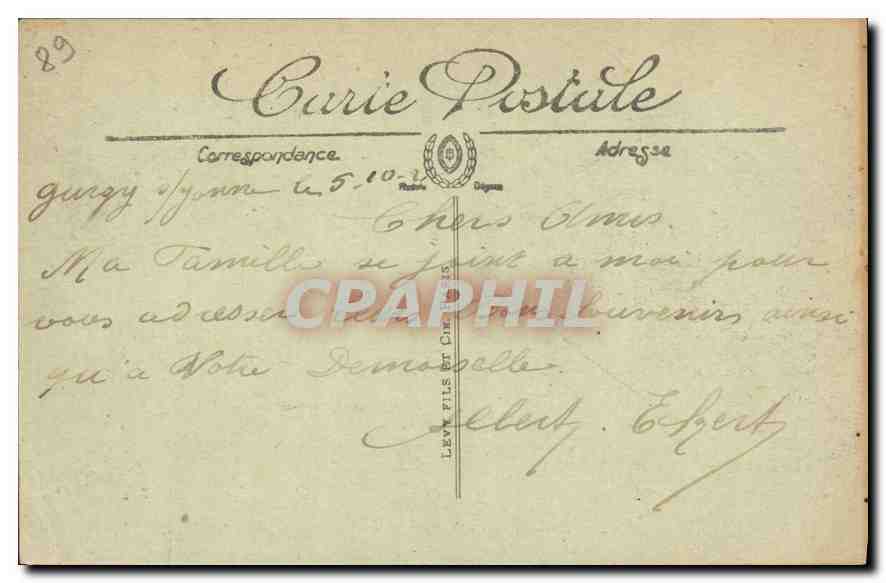 89
Carte Postale
Correspondance
Adresse
gurgy s/yonne le 5-10-2
Chers Amis.
Ma Famille se joint a moi pour
vous adresser Bons Souvenirs ainsi
qu'a Votre Demoiselle.
Albert
LEVY FILS ET CIE, PARIS
CPAPHIL